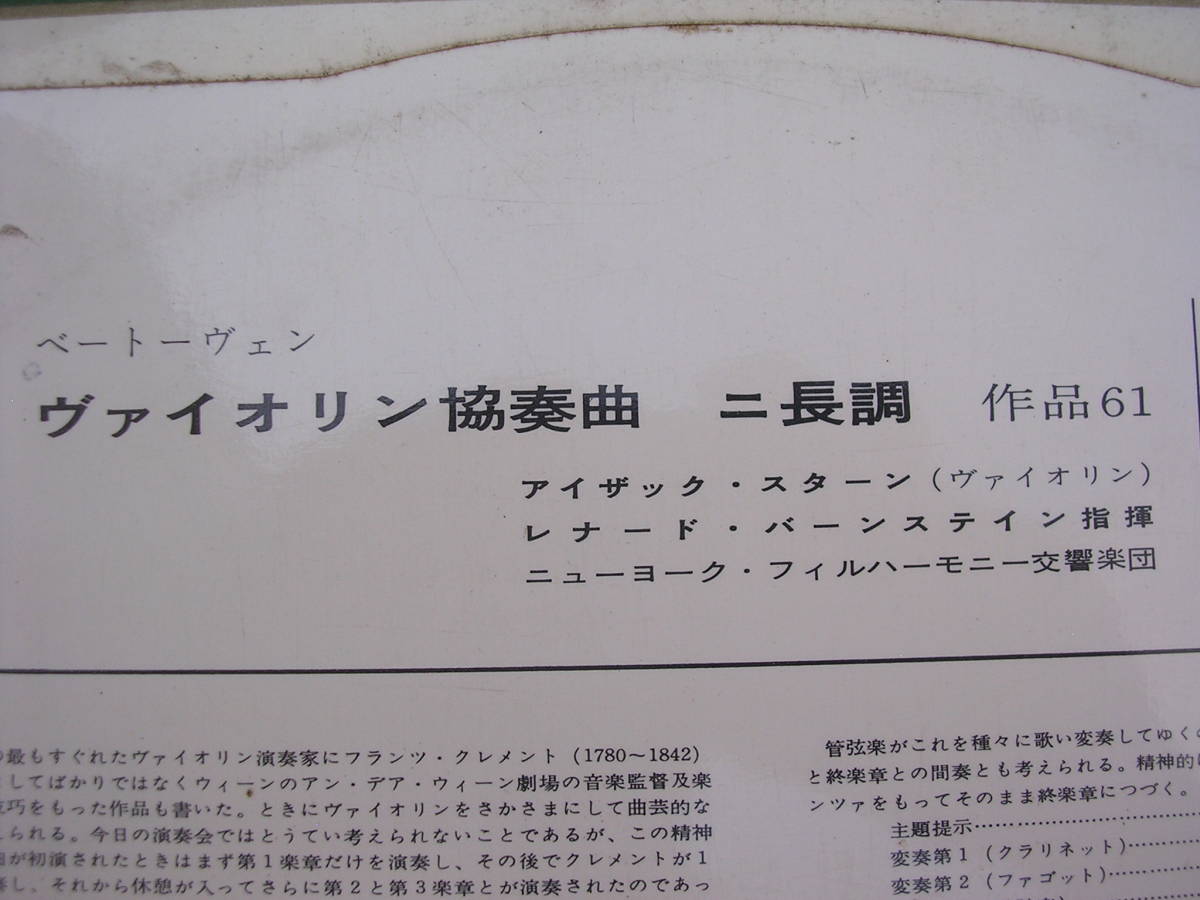 ベートーヴェン
ヴァイオリン協奏曲 ニ長調 作品61
アイザック・スターン(ヴァイオリン)
レナード・バーンステイン指揮
ニューヨーク・フィルハーモニー交響楽団
の最もすぐれたヴァイオリン演奏家にフランツ・クレメント(1780～1842)
してばかりではなくウィーンのアン・デア・ウィーン劇場の音楽監督及楽
技巧をもった作品も書いた。ときにヴァイオリンをさかさまにして曲芸的な
られる。今日の演奏会ではとうてい考えられないことであるが、この精神
が初演されたときはまず第1楽章だけを演奏し、その後でクレメントが1
奏し、それから休憩が入ってさらに第2と第3楽章とが演奏されたのであっ
管弦楽がこれを種々に歌い変奏してゆくの
と終楽章との間奏とも考えられる。精神的に
ンツァをもってそのまま終楽章につづく。
主題提示……………………
変奏第1(クラリネット)…………
変奏第2(ファゴット)……………